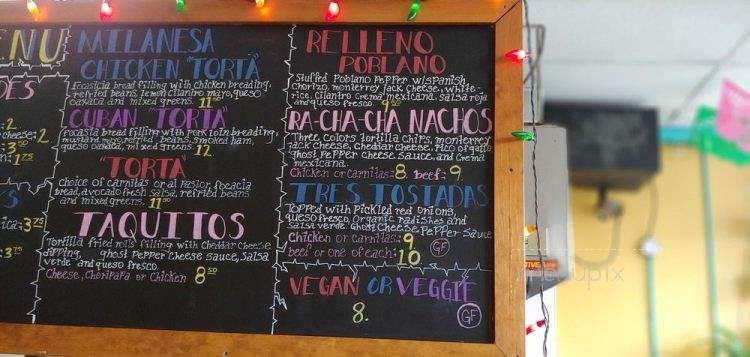 ENU
DES
:2
cheese: 2
:3.50
:1.25
S
ica:3.75
:3.75
MILANESA
CHICKEN "TORTA"
Focascia bread filling with chicken breading,
refried beans, lemon cilantro mayo, queso
oaxaca and mixed greens. 11.50
CUBAN TORTA
Focasia bread filling with pork loin breading,
mustard mayo, refried beans, smoked ham,
queso oaxaca, mixed greens. 12
"TORTA"
choice of carnitas or al pastor, focacia
bread, avocado fresh salsa, refried beans
and mixed greens. 11.50
TAQUITOS
Tortilla fried rolls filling with cheddar cheese
dipping, ghost pepper cheese sauce, salsa
verde and queso fresco.
Cheese, choripapa or chicken 8.50
RELLENO
POBLANO
Stuffed Poblano Pepper w/spanish
chorizo, monterrey jack cheese, white
rice, cilantro crema mexicana, salsa roja
and queso fresco. 9.50
RA-CHA-CHA NACHOS
Three colors tortilla chips, monterrey
jack cheese, cheddar cheese, pico of gallo
ghost pepper cheese sauce, and crema
mexicana.
Chicken or carnitas: 8 beef: 9
TRES TOSTADAS
Topped with pickled red onions,
queso fresco, organic radishes and
salsa verde Ghost Cheese Pepper sauce
Chicken or carnitas: 9
beef or one of each: 10 GF
VEGAN OR VEGGIE
8. GF